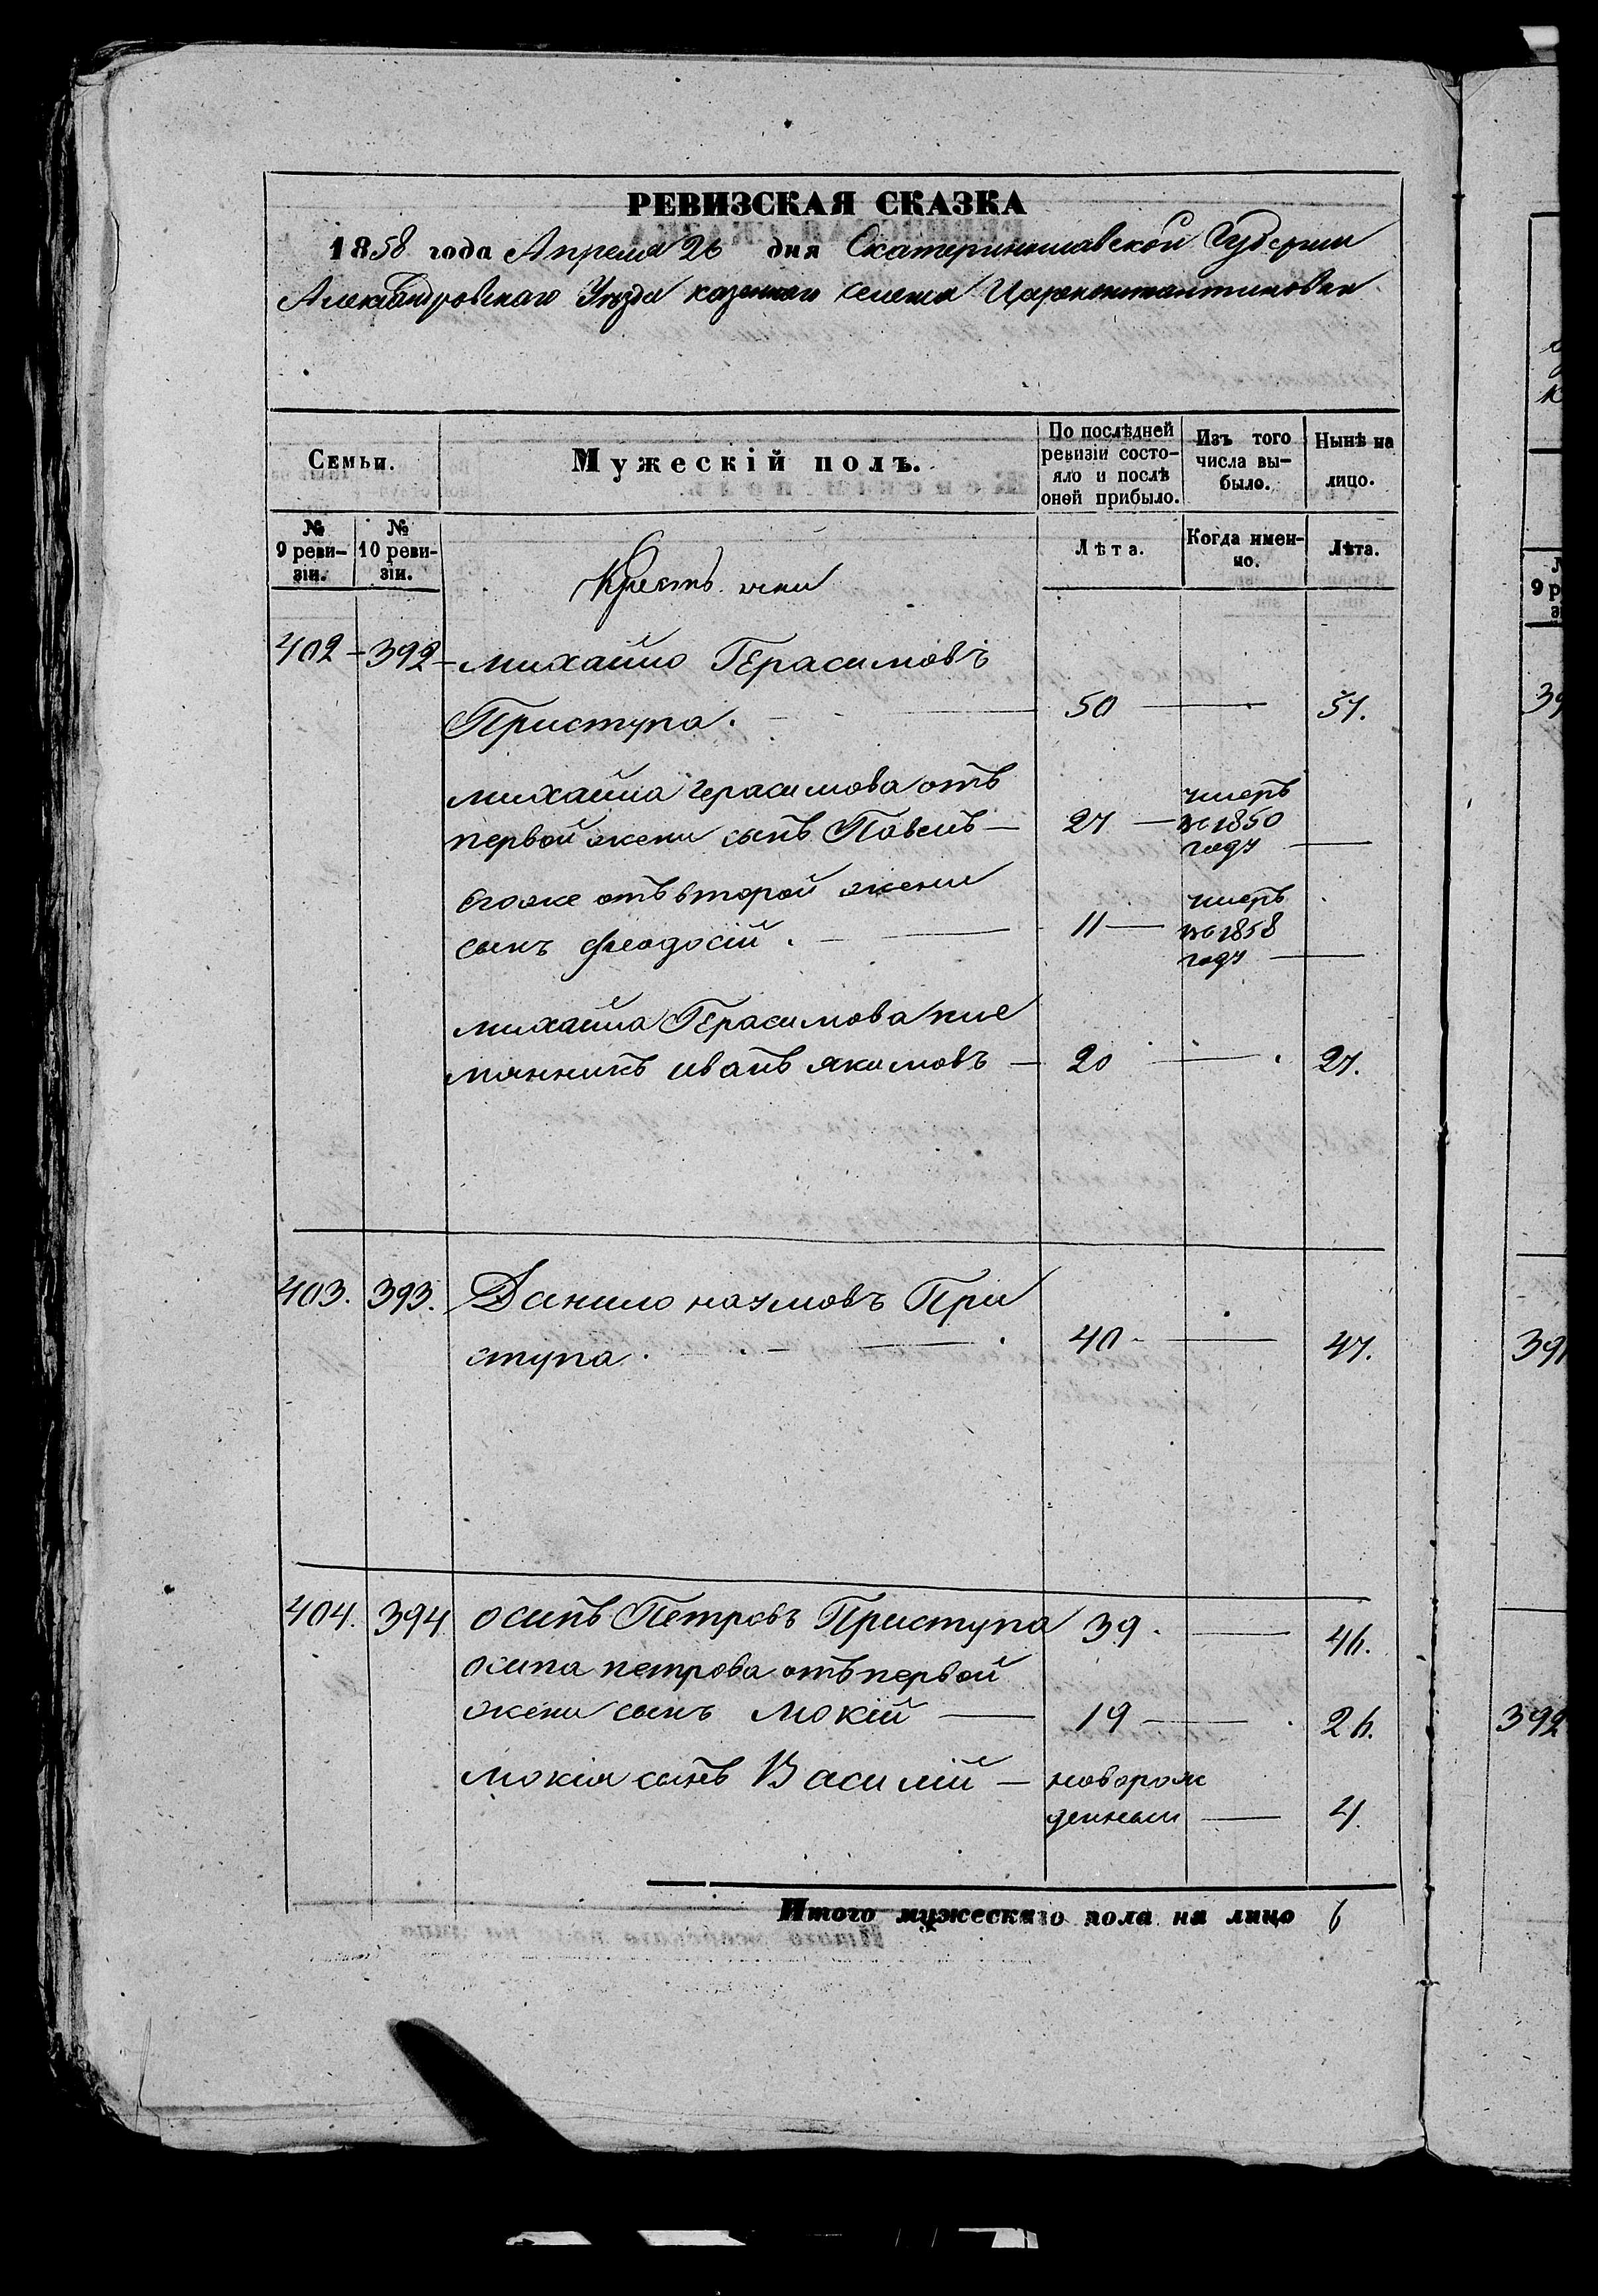 РЕВИЗСКАЯ СКАЗКА
1858 года Апреля 26 дня Екатеринославской Губернии
Александровскаго Уезда казенного селения Цареконстантиновки
Семьи.
Мужескій полъ.
По послѣдней
ревизіи состо-
яло и послѣ
оной прибыло.
Изъ того
числа вы-
было.
Нынѣ на
лицо.
№
9 реви-
зіи.
№
10 реви-
зіи.
Крестьяне
Лѣта.
Когда имен-
но.
Лѣта.
402 - 392 - михайло Герасимовъ
Приступа. 50 — 57.
михайла герасимова отъ умеръ
первой жени сынъ Павелъ — 27 — въ 1850
году —
Егоже отъ второй жени умеръ
сынъ феодосій. — 11 — въ 1858
году —
михайла Герасимова пле
мянникъ иванъ якимовъ — 20 — 27.
403. 393. Данило наумовъ При
ступа. — 40 — 47.
404. 394 осипъ Петровъ Приступа 39. — 46.
осипа петрова отъ первой
жени сынъ мокій — 19 — 26.
мокія сынъ Василій — новорож
денный — 4.
Итого мужескаго пола на лицо 6
9 р
392